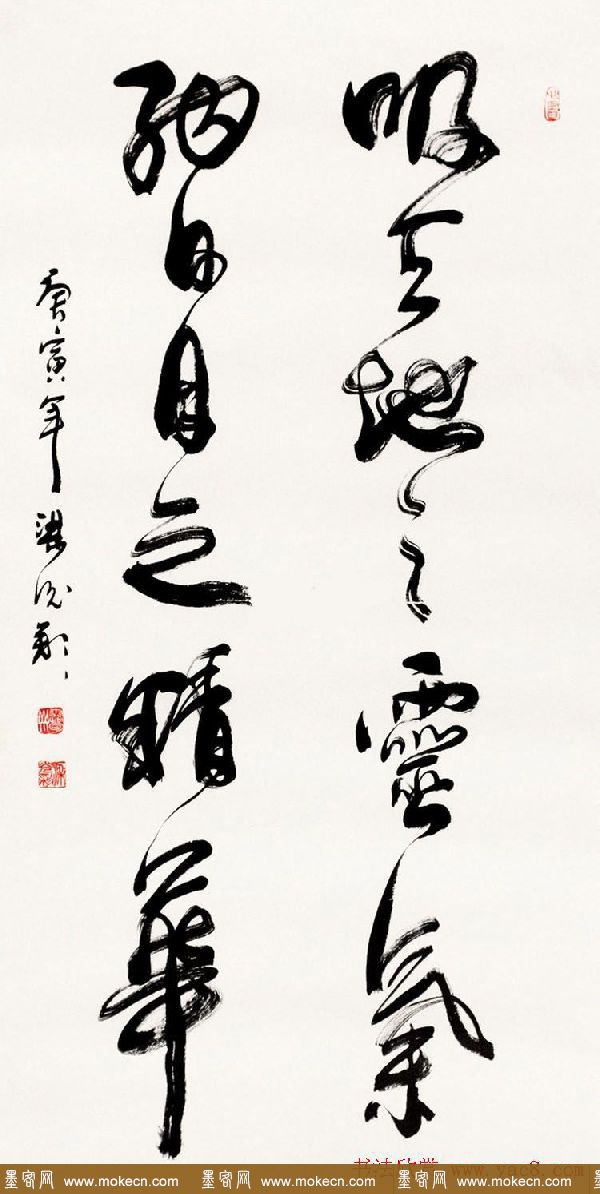 吸天地之靈氣
納日月之精華
庚寅年 梁
书法欣赏 www.yac8.com
墨客网 www.mokecn.com 墨客网 www.mokecn.com 墨客网 www.mokecn.com